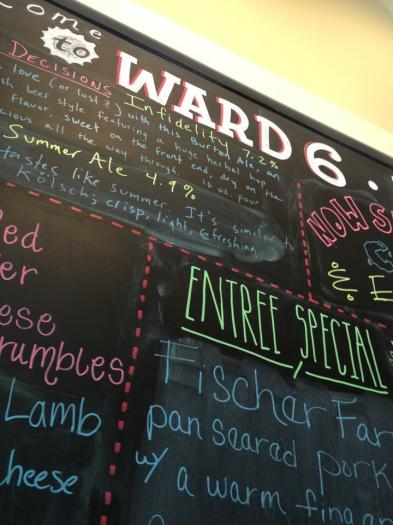 come
to
WARD 6.
DECISIONS Infidelity 7.2%
love (or lust?) with this Burton Ale, an
beer style featuring a huge herbal hop
flavor, sweet on the front end, dry on the
all the way through. 16 oz. pour
Summer Ale 4.9%
tastes like summer. It's similar to
Kölsch; crisp, light, refreshing
NOW S
& E
ENTREE SPECIAL
Fischer Far
pan seared pork
w/ a warm fing
Lamb
heese
rumbles